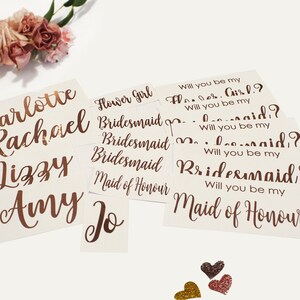 arlotte
Rachael
Lizzy
Amy
Flower Girl
Bridesmaid
Bridesmaid
Bridesmaid
Maid of Honour
Jo
Will you be my
Flower Girl?
Will you be my
Will you be my
Bridesmaid?
Will you be my
Maid of Honour